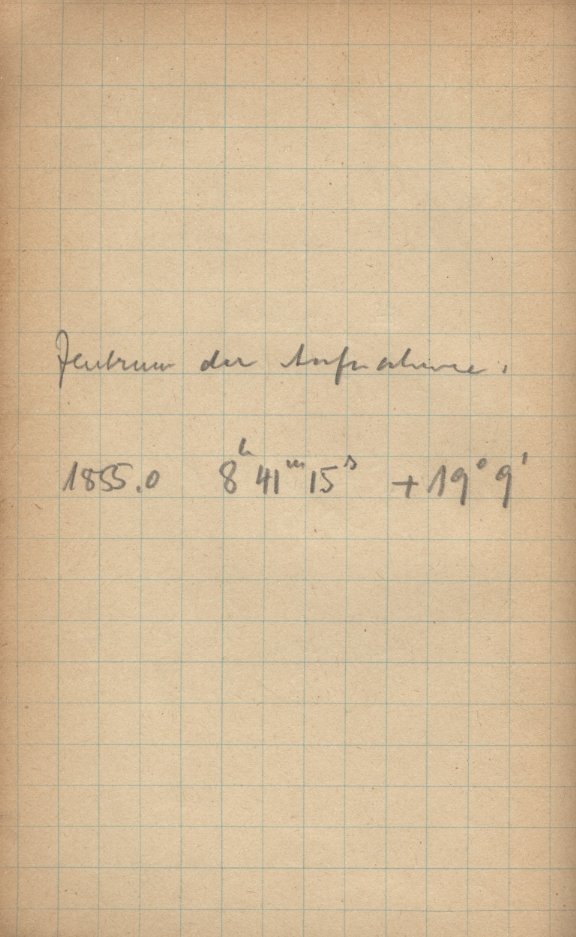 Zentrum der Aufnahme.
1855.0 8ʰ 41ᵐ 15ˢ +19° 9'